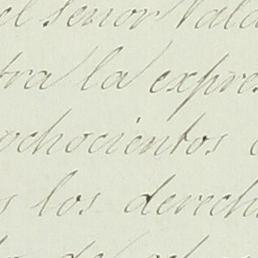 el señor Vald
tra la expres
ochocientos
los derech